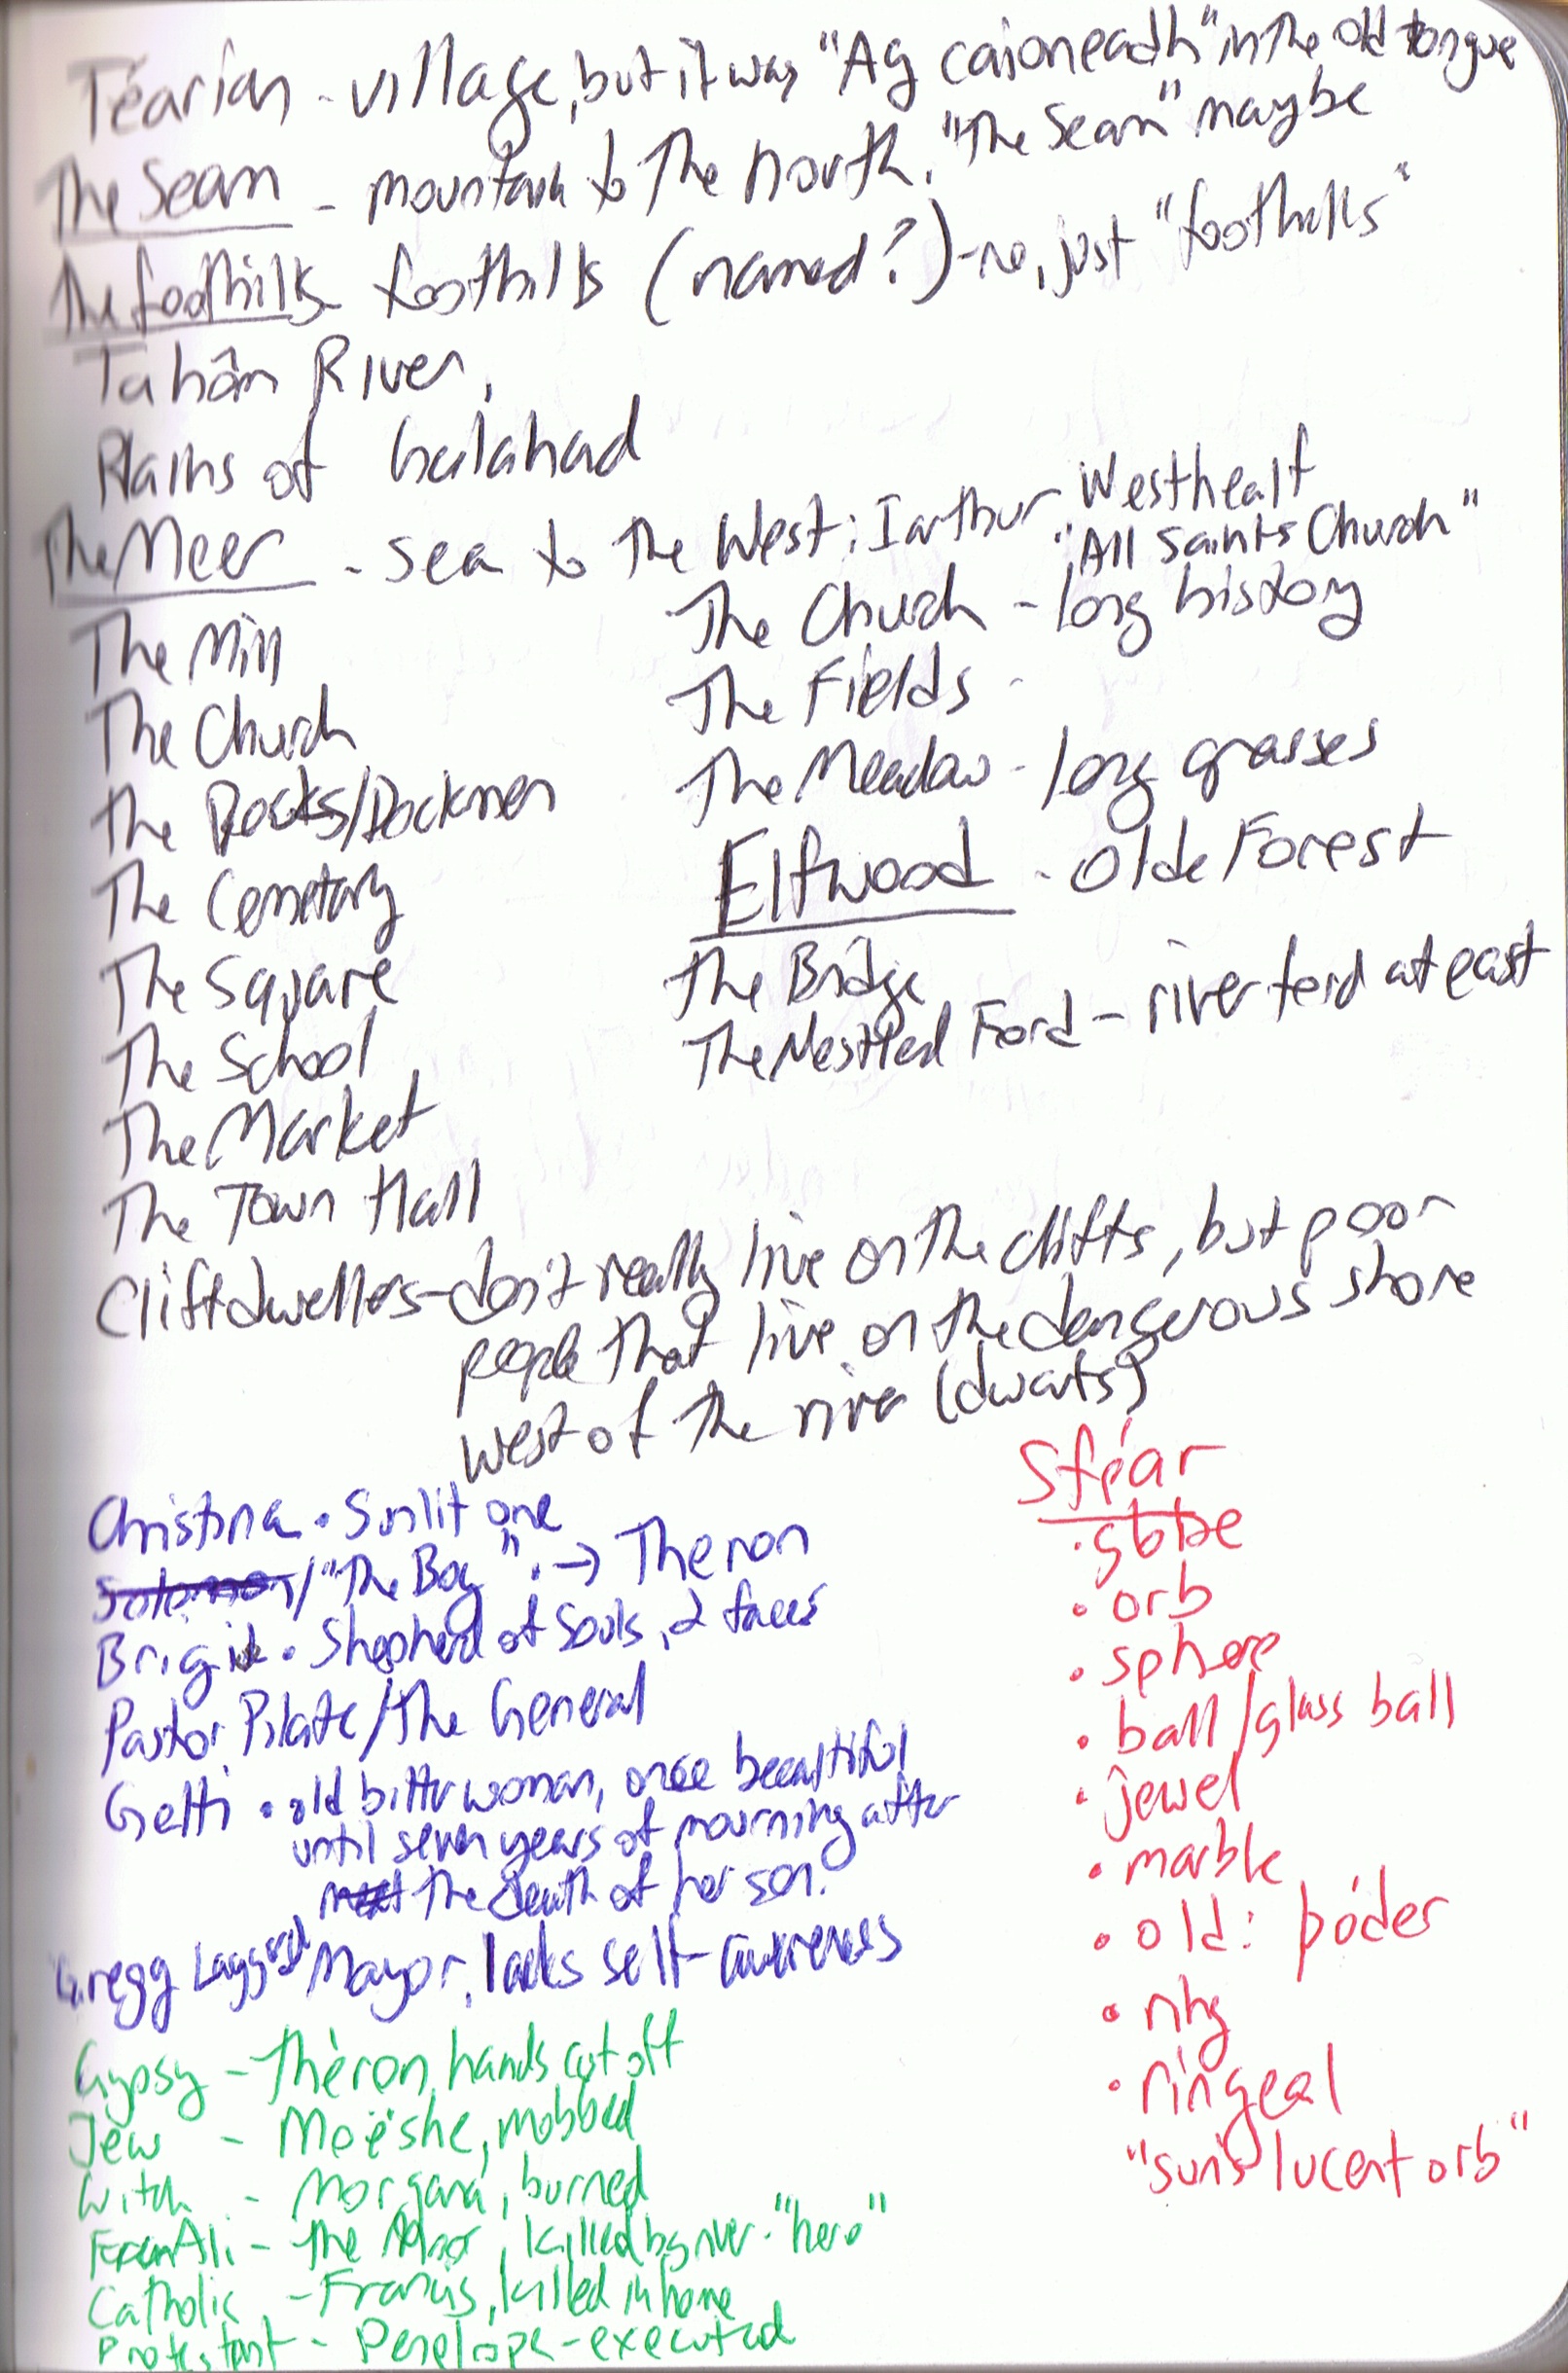 Téarian - village, but it was "Ag caioneadh" in the old tongue
The Sean - mountain to the north. "The Sean" maybe
The foothills foothills (named?) - no, just "foothills"
Tahân River,
Plains of Galahad
The Meer - sea to the West; Iarthur Westhealt
The Mill
The Church
The Docks/Dockmen
The Cemetary
The Square
The School
The Market
The Town Hall
"All Saints Church"
The Church - long history
The Fields -
The Meadow - long grasses
Elfwood - Olde Forest
The Bridge
The Nestled Ford - river ford at east
Cliffdwellers - don't really live on the cliffs, but poor
people that live on the dangerous shore
west of the river (dwarfs?)
Christina • Sunlit one
Solomon/"The Boy" • → Theron
Brigit • Shepherd of Souls, 2 faces
Pastor Pilate/The General
Getti • old bitter woman, once beautiful
until seven years of mourning after
the death of her son.
Gregg Laggard Mayor, lacks self-awareness
Gypsy - Théron, hands cut off
Jew - Moëshe, mobbed
Witch - Morgana, burned
Ali - The, killed by river - "hero"
Catholic - Francis, killed in home
Protestant - Penelope - executed
Sféar
• globe
• orb
• sphere
• ball/glass ball
• jewel
• marble
• old: póder
• ring
• ringeal
"sun's lucent orb"